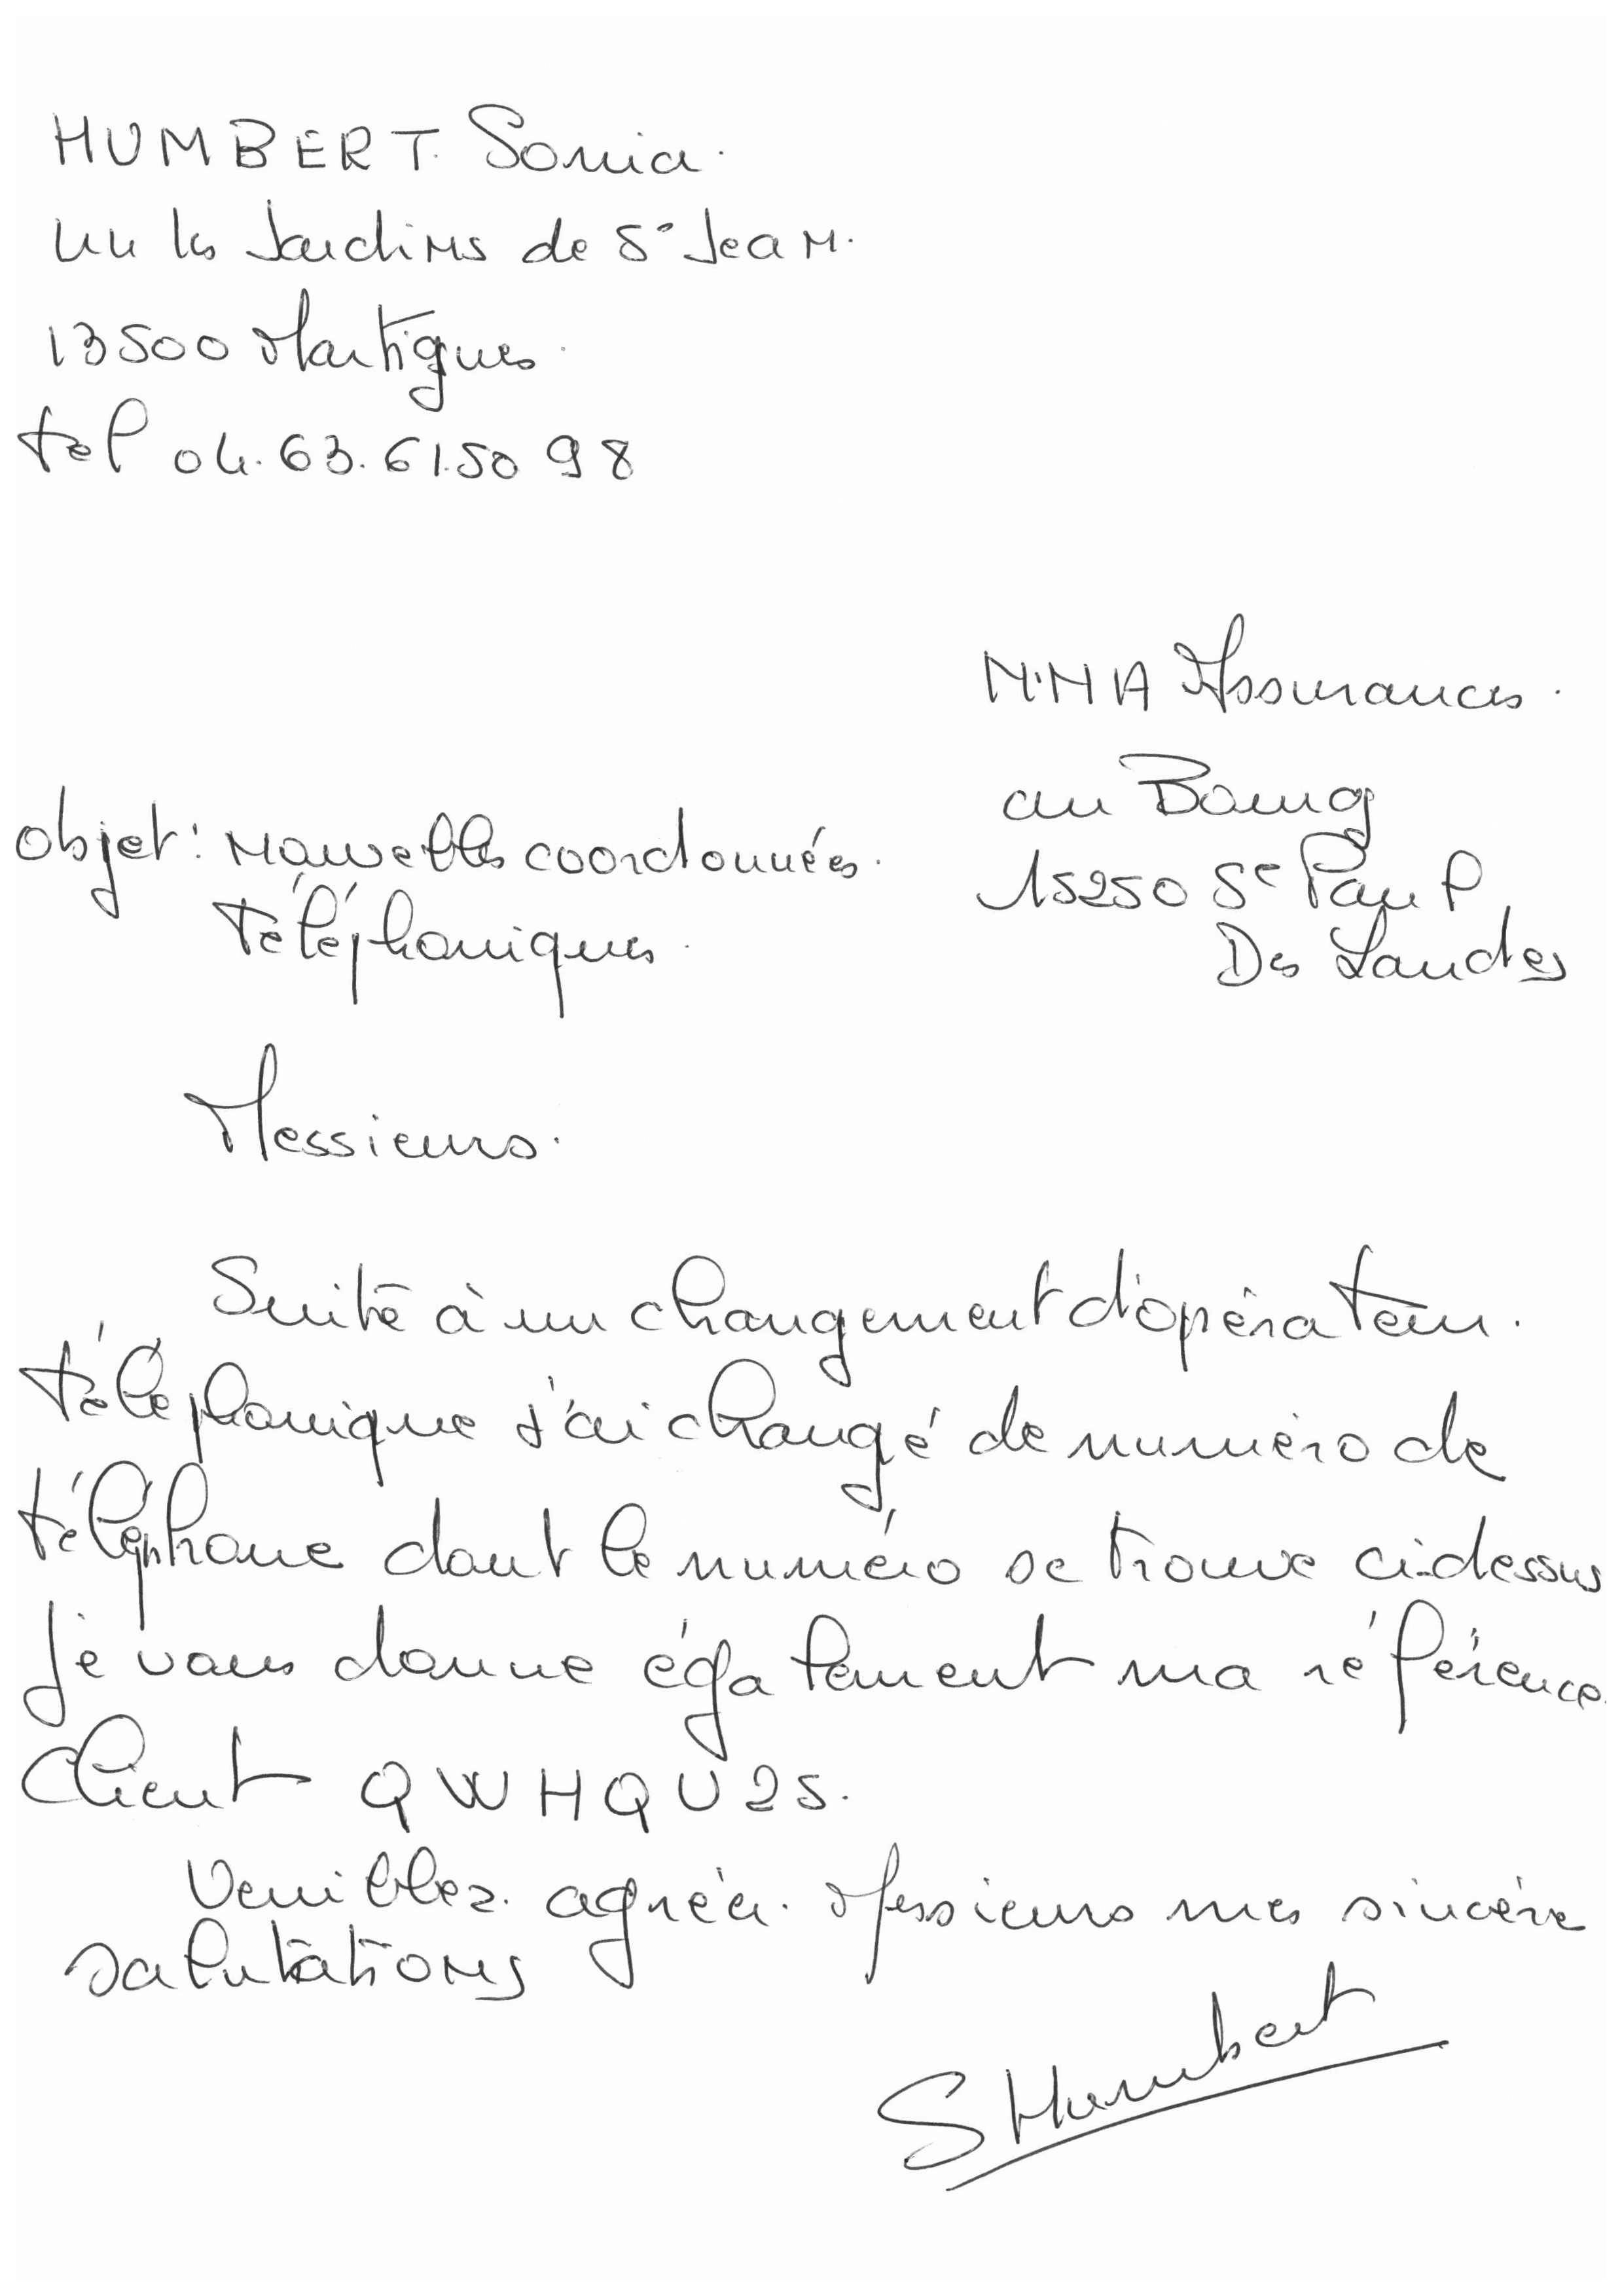 HUMBERT Sonia.
44 les Jardins de St Jean.
13500 Martigues.
tel 04.63.61.50 98
M.M A Assurances.
au Bourg
15250 St Paul
Des Landes
objet : Nouvelles coordonnées.
téléphoniques.
Messieurs.
Suite à un changement d'opérateur.
téléphonique j'ai changé de numéro de
téléphone dont le numéro se trouve ci-dessus
Je vous donne également ma référence
Client QWHQU25.
Veuillez. agréer. Messieurs mes sincère
salutations
SHumbert